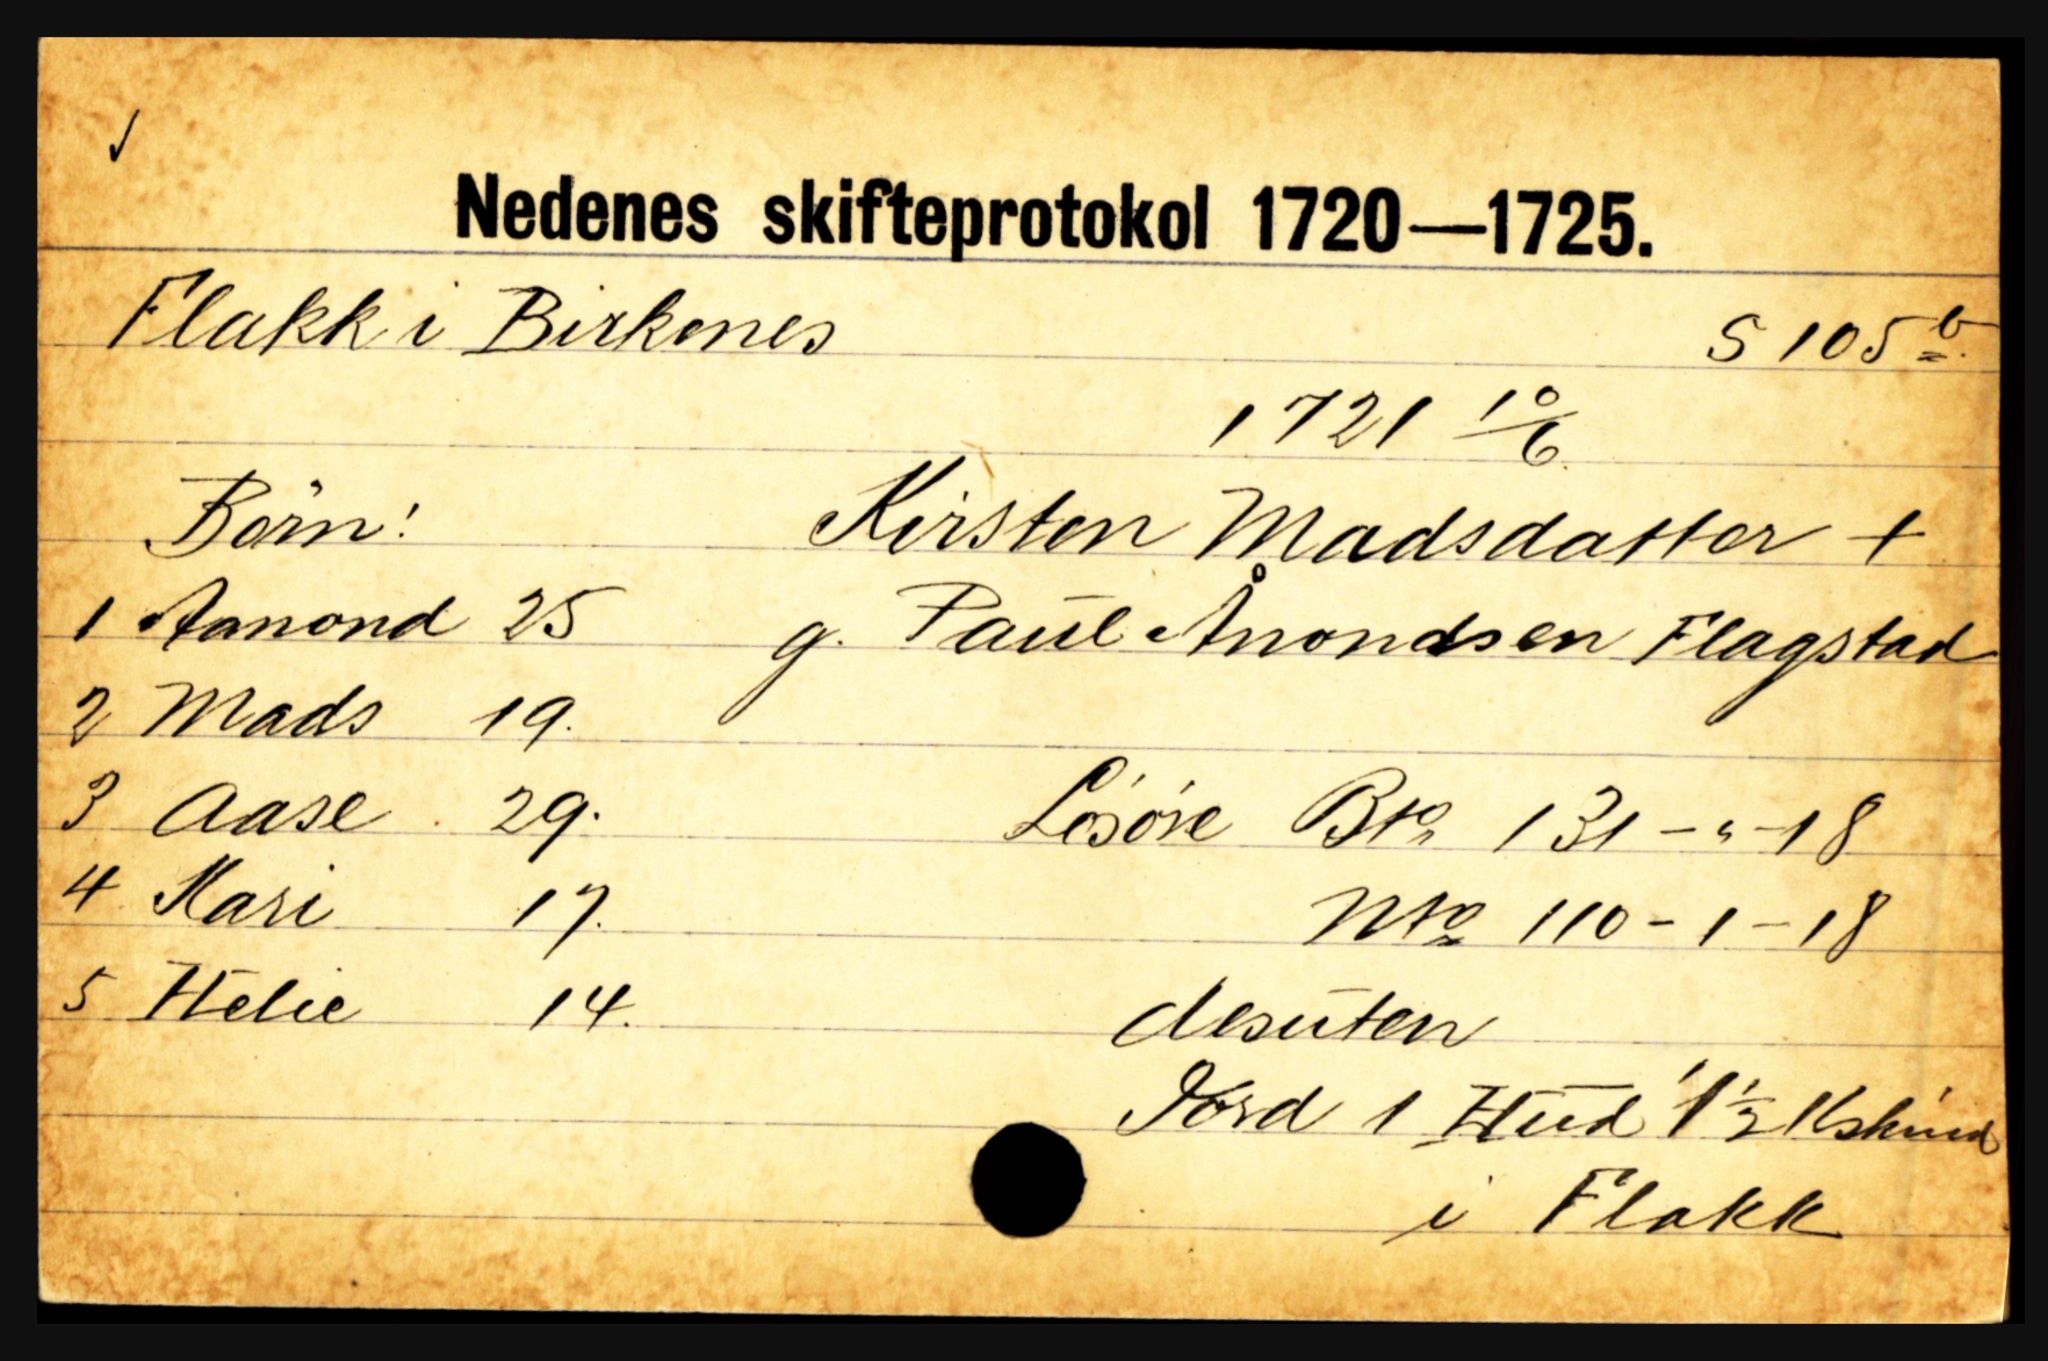 ✓
Nedenes skifteprotokol 1720—1725.
Flakk i Birkenes S 105 b.
1721 10/6.
Börn: Kirsten Madsdatter +
1 Aanond 25 g. Paul Ånondsen Flagstad
2 Mads 19.
3 Aase 29. Lösöre Bto 131 - " - 18
4 Kari 17. Nto 110 - 1 - 18
5 Helie 14. desuten
Jord 1 Hud 1 1/2 Kskind
i Flakk